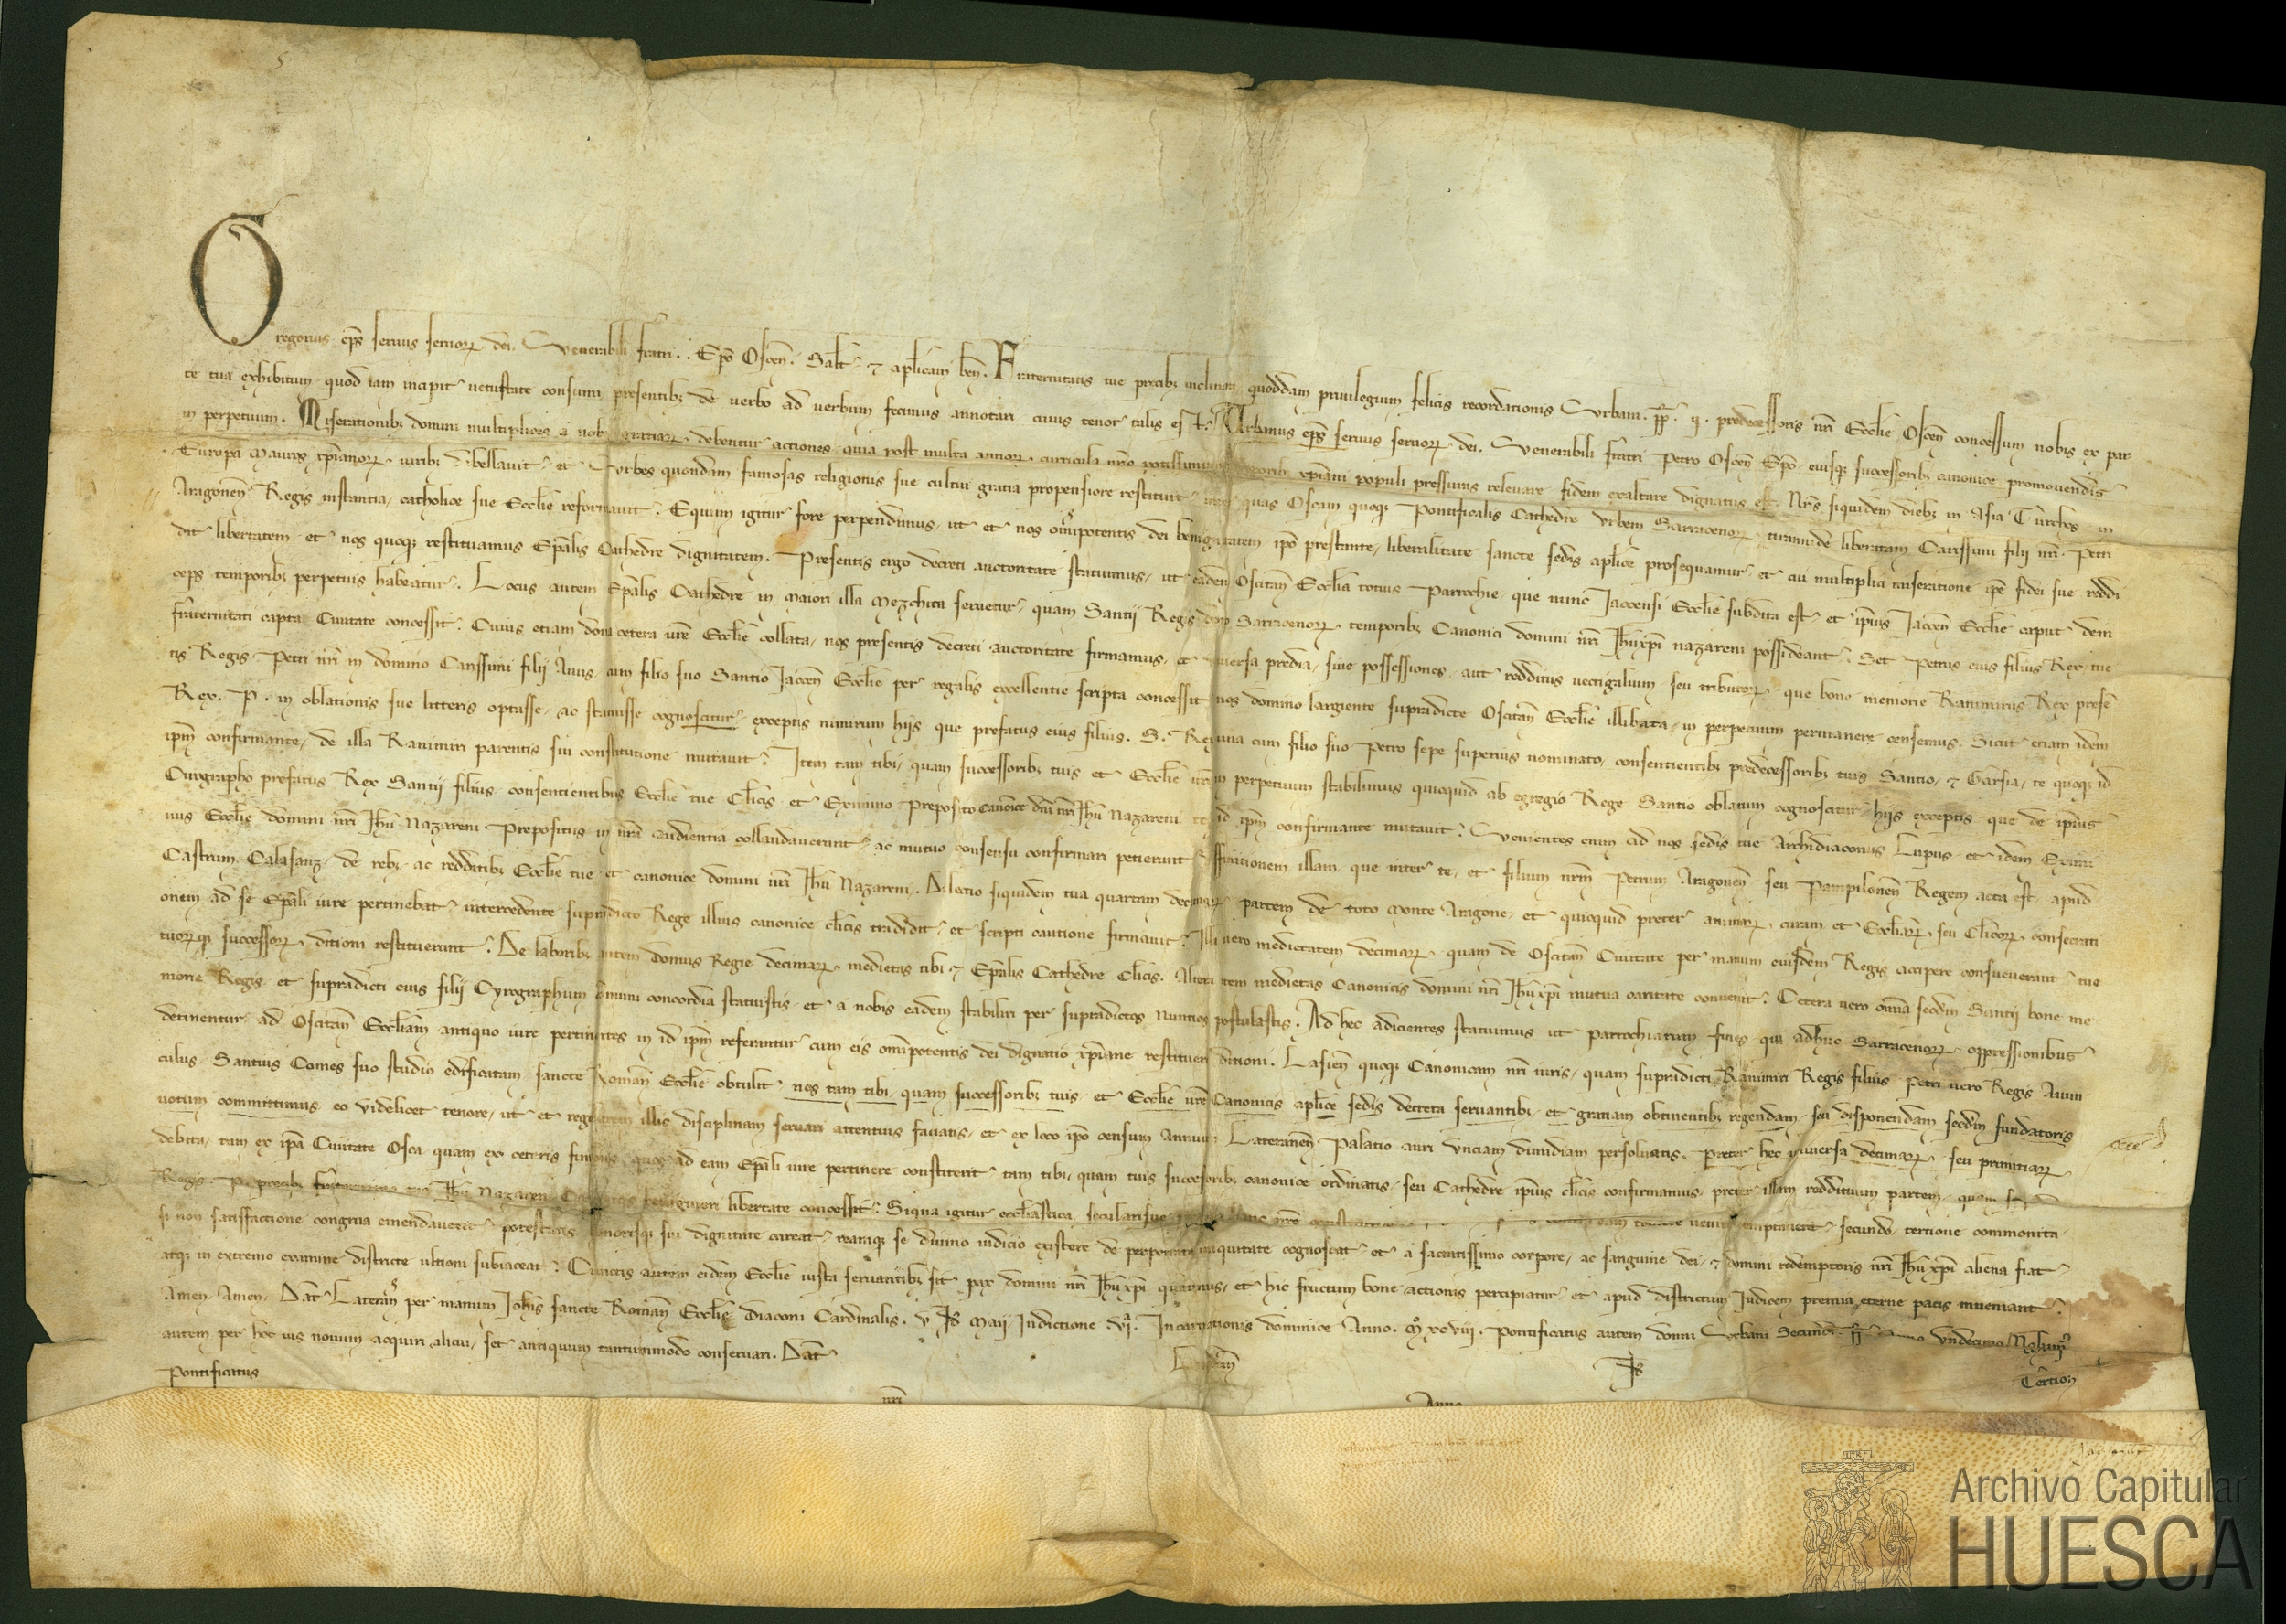 Gregorius ep̄s seruus seruoꝝ dei. Venerabili fratri . . Ep̄o Oscen̄. Salt̄ ⁊ ap̄licam ben̄. Fraternitatis tue precibꝫ inclinati quoddam priuilegium felicis recordationis Vrbani. pp̄. ij. predecessoris nr̄i Eccl̄ie Oscen̄ concessum nobis ex par
te tua exhibitum quod iam incipit uetustate consumi presentibꝫ de uerbo ad uerbum fecimus annotari cuius tenor talis est. Urbanus ep̄s seruus seruoꝝ dei. Venerabili fratri Petro Oscen̄ Ep̄o eiusqꝫ successoribꝫ canonice promouendis
in perpetuum. Miserationibꝫ domini multiplices a nobis gratiaꝝ debentur actiones quia post multa annoꝝ curricula nr̄o potissimum temporibꝫ xp̄iani populi pressuras releuare fidem exaltare dignatus est. Nr̄is siquidem diebꝫ in Asia Turchos in
Europa Mauros xp̄ianoꝝ uiribꝫ debellauit et Vrbes quondam famosas religionis sue cultui gratia propensiore restituit inter quas Oscam quoqꝫ Pontificalis Cathedre urbem Sarracenoꝝ tirannide liberatam Carissimi filij nr̄i Petri
Aragonen̄ Regis instantia, catholice sue Eccl̄ie reformauit. Equum igitur fore perpendimus, ut et nos om̄ipotentis dei benignitatem ip̄o prestante, liberalitate sancte sedis ap̄lice prosequamur et cū multiplici miseratione ip̄e fidei sue reddi
dit libertatem et nos quoqꝫ restituamus Ep̄alis Cathedre dignitatem. Presentis ergo decreti auctoritate statuimus, ut eadem Oscitan̄ Eccl̄ia totius Parrochie, que nunc Iaccensi Eccl̄ie subdita est et ip̄ius Iaccen̄ Eccl̄ie caput dein
ceps temporibꝫ perpetuis habeatur. Locus autem Ep̄alis Cathedre in maiori illa Mezchita seruetur, quam Santij Regis dono Sarracenoꝝ temporibꝫ Canonici domini nr̄i Ih̄u xp̄i nazareni possideant. Set Petrus eius filius Rex tue
fraternitati capta Ciuitate concessit. Cuius etiam doni cetera ur̄e Eccl̄ie collata, nos presentis decreti auctoritate firmamus, et uniuersa predia, siue possessiones, aut redditus uectigalium seu tributoꝝ que bone memorie Ranimirus Rex prese
tis Regis Petri nr̄i in domino Carissimi filij Auus, cum filio suo Santio Iaccen̄ Eccl̄ie per regalis excellentie scripta concessit nos domino largiente supradicte Oscitan̄ Eccl̄ie illibata, in perpetuum permanere censemus. Sicut etiam idem
Rex. P. in oblationis sue litteris optasse, ac statuisse cognoscitur exceptis nimirum hijs que prefatus eius filius. S. Rex una cum filio suo Petro sepe superius nominato, consentientibꝫ predecessoribꝫ tuis Santio, ⁊ Garsia, te quoqꝫ id
ip̄m confirmante, de illa Ranimiri parentis sui constitutione mutauit. Item tam tibi, quam successoribꝫ tuis et Eccl̄ie ur̄e in perpetuum stabilimus quicquid ab egregio Rege Santio oblatum cognoscitur, hijs exceptis que de ip̄ius
Cirographo prefatus Rex Santij filius consentientibus Eccl̄ie tue Cl̄icis et Eximino Preposito Canonice dn̄i nr̄i Ih̄u Nazareni te id ip̄m confirmante mutauit. Venientes enim ad nos sedis tue Archidiaconus Lupus et idem Eximi
nus Eccl̄ie domini nr̄i Ih̄u Nazareni Prepositus in nr̄a audientia collaudauerunt ac mutuo consensu confirmari petierunt diffinitionem illam, que inter te, et filium nr̄m Petrum Aragonen̄ seu Pampilonen̄ Regem acta est apud
Castrum Calasanz, de rebꝫ ac redditibꝫ Eccl̄ie tue et canonice domini nr̄i Ih̄u Nazareni. Dilectio siquidem tua quartam decimaꝝ partem de toto Monte Aragone, et quicquid preter animaꝝ curam et Eccl̄iaꝝ, seu Cl̄icoꝝ consecrati
onem ad se Ep̄ali iure pertinebat intercedente supradicto Rege illius canonice cl̄icis tradidit et scripti cautione firmauit. Illi uero medietatem decimaꝝ quam de Oscitan̄ Ciuitate per manum eiusdem Regis accipere consueuerant tue
tuoꝝqꝫ successoꝝ ditioni restituerunt. De laboribꝫ autem domus Regie decimaꝝ medietas tibi ⁊ Ep̄alis Cathedre Cl̄icis. Altera item medietas Canonicis domini nr̄i Ih̄u xp̄i mutua caritate conuenit. Cetera uero om̄ia secdm̄ Santij bone me
morie Regis et supradicti eius filij Cyrographum om̄imi concordia statuistis et a nobis eadem stabiliri per supradictos nuntios postulastis. Ad hec adicientes statuimus ut parrochiarum fines qui adhuc Sarracenoꝝ oppressionibus
detinentur ad Oscitan̄ Eccl̄iam antiquo iure pertinentes in id ip̄m referantur cum eis om̄ipotentis dei dignatio xp̄iane restituerit ditioni. Lasien̄ quoqꝫ Canonicam nr̄i iuris, quam supradicti Ranimiri Regis filius Petri uero Regis Auun
culus, Santius Comes suo studio edificatam sancte Roman̄ Eccl̄ie obtulit nos tam tibi, quam successoribꝫ tuis et Eccl̄ie ur̄e Canonicis ap̄lice sedis decreta seruantibꝫ et gratiam obtinentibꝫ regendam, seu disponendam secdm̄ fundatoris
uotum committimus eo uidelicet tenore, ut et regularem illic disciplinam seruari attentius faciatis, et ex loco ip̄o censum annuum Lateranen̄ Palatio auri Vnciam dimidiam persoluatis. Preter hec uniuersa decimaꝝ seu primitiaꝝ
debita, tam ex ip̄a Ciuitate Osca quam ex ceteris finibus, quos ad eam Ep̄ali iure pertinere constiterit tam tibi, quam tuis successoribꝫ canonice ordinatis seu Cathedre ip̄ius cl̄icis confirmamus preter illam reddituum partem, quam
Regis P. precibꝫ Ih̄u Nazareni Canonicis benigniori libertate concessit. Siqua igitur eccl̄iastica, secularisue uenire temptauerit secundo, tertioue commonita
si non satisfactione congrua emendauerit potestatis honorisqꝫ sui dignitate careat reamqꝫ se diuino iudicio existere de perpetrata iniquitate cognoscat et a sacratissimo corpore, ac sanguine dei, ⁊ domini redemptoris nr̄i Ih̄u xp̄i aliena fiat
atqꝫ in extremo examine districte ultioni subiaceat. Cunctis autem eidem Eccl̄ie iusta seruantibꝫ sit pax domini nr̄i Ih̄u xp̄i quatinus, et hic fructum bone actionis percipiatur et apud districtum Iudicem premia eterne pacis inueniant.
Amen. Amen. Dat̄ Lateran̄ per manum Ioh̄is sancte Roman̄ Eccl̄ie Diaconi Cardinalis. v Id̄ Maij Indictione vi. Incarnationis dominice Anno. M xcviij. Pontificatus autem domni Vrbani Secundi. pp̄ Anno Vndecimo Nolum᷒
autem per hoc ius nouum acquiri alicui, set antiquum tantummodo conseruari. Dat̄ Lateran̄ Id̄ Tertio
Pontificatus nr̄i Anno
Archivo Capitular
HUESCA